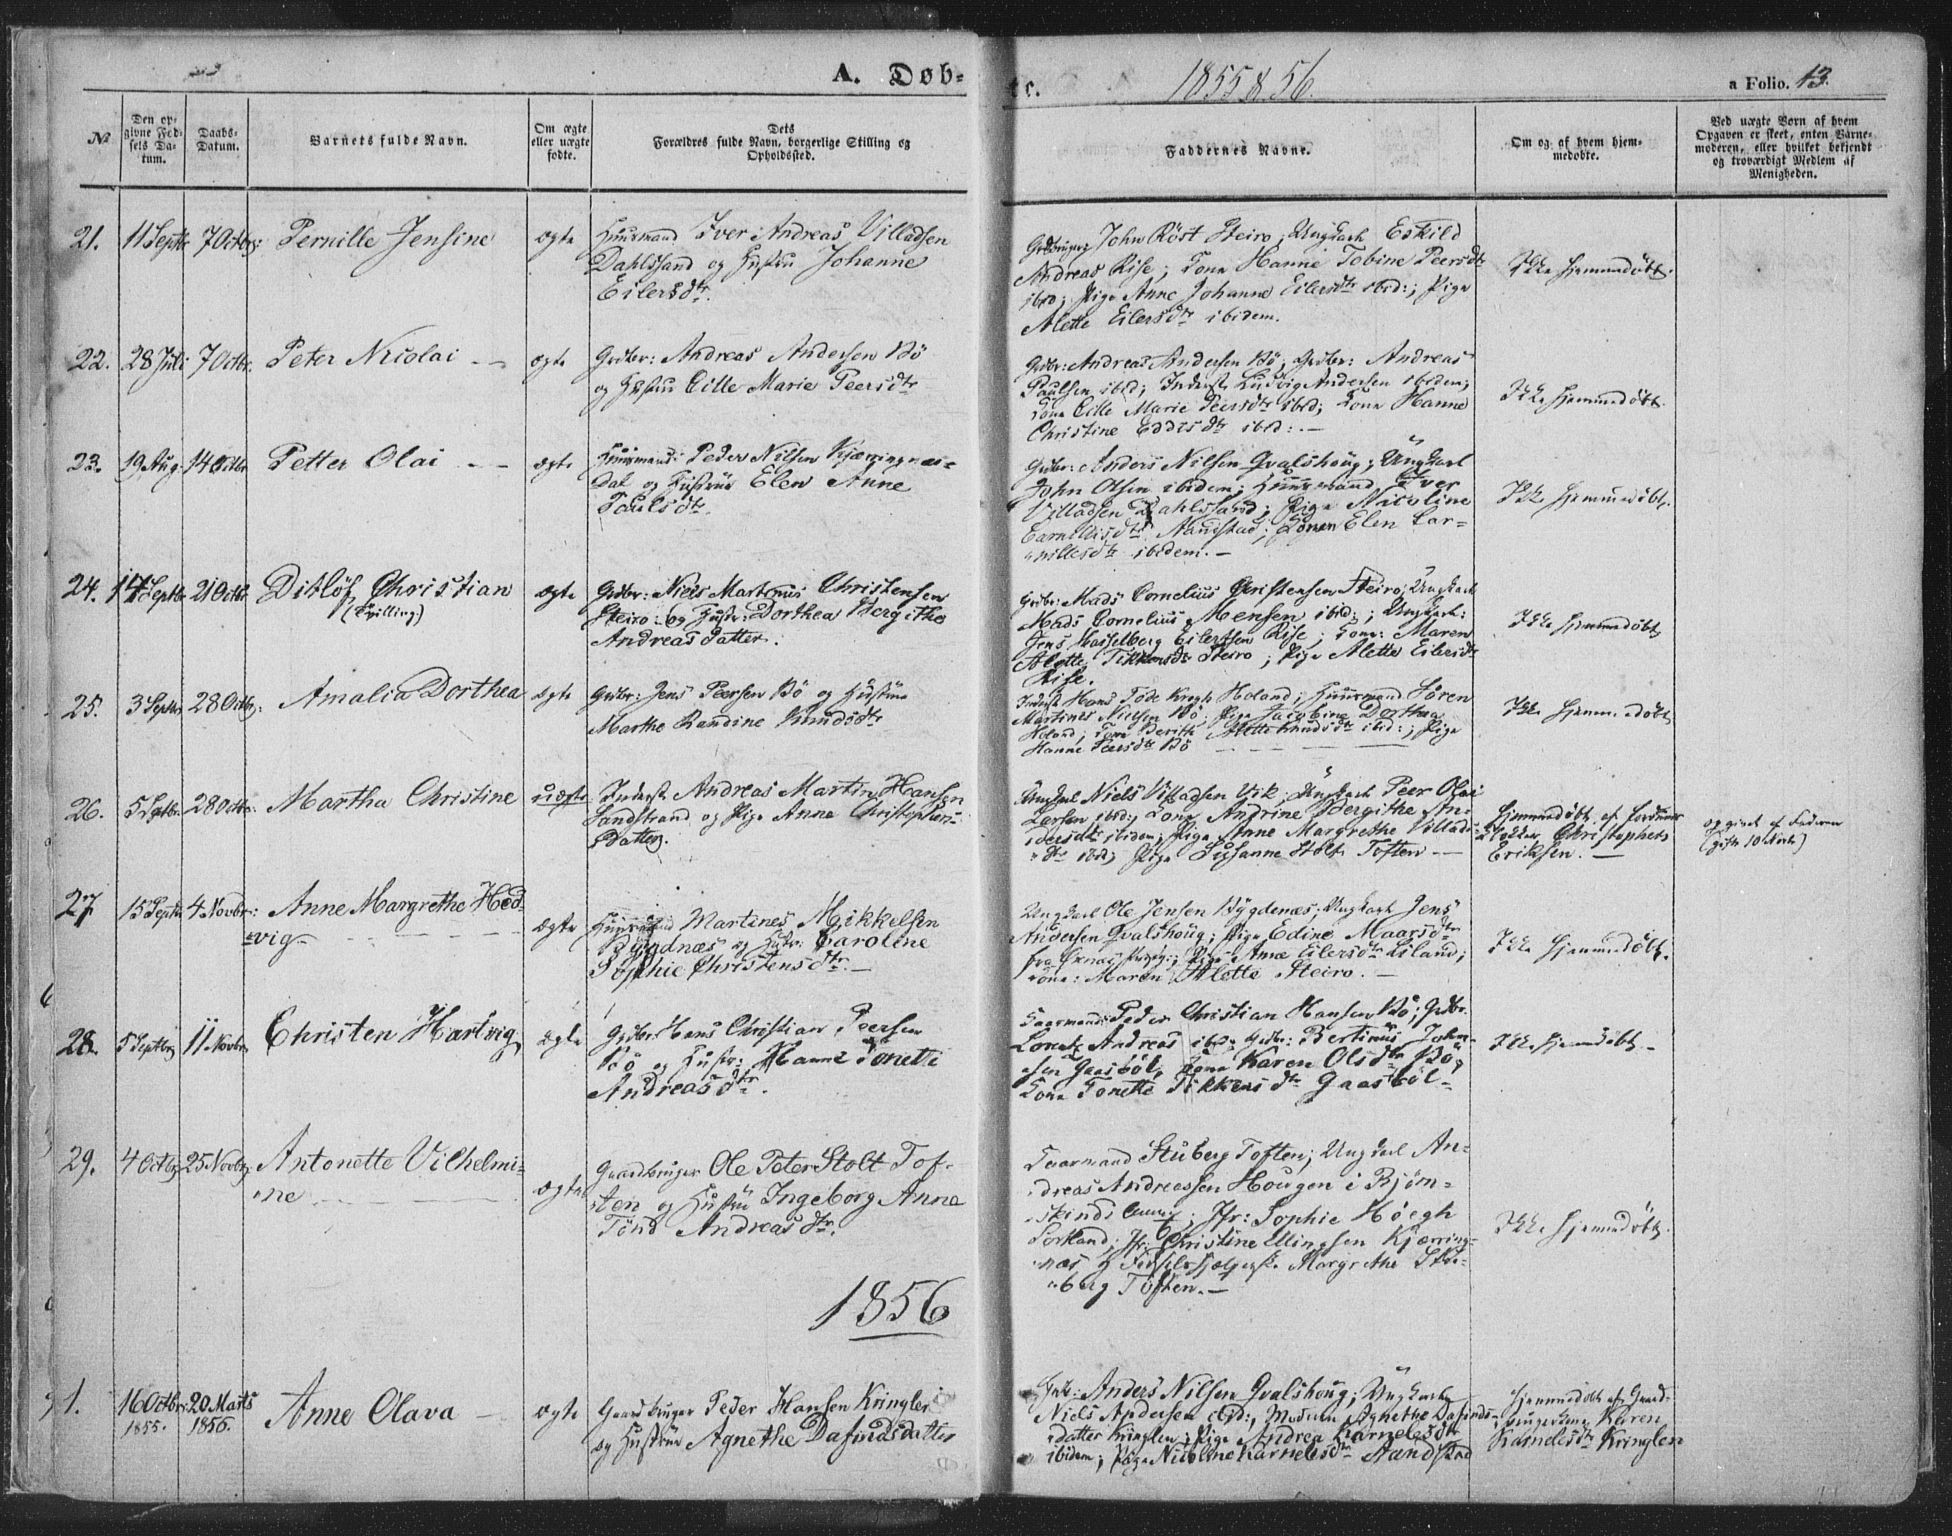 A. Døb-
te.
1855 & 56.
a Folio. 13.
№
Den op-
givne Fød-
sels Da-
tum.
Daabs-
Datum.
Barnets fulde Navn.
Om ægte
eller uægte
fødte.
Dets
Forældres fulde Navn, borgerlige Stilling og
Opholdssted.
Faddernes Navne.
Om og af hvem hjem-
medøbte.
Ved uægte Børn af hvem
Opgaven er skeet, enten Barne-
moderen, eller hvilket bekjendt
og troværdigt Medlem af
Menigheden.
21. 11 Septbr 7 Octbr: Pernille Jensine ægte Huusmand Iver Andreas Villadsen
Dahlssand og Hustru Johanne
Eilersdtr.
John Röst Steiro; Ungkarl Eskild
Andreas Rise; Kone Hanne Tobine Peersdtr
ibid; Pige Anne Johanne Eilersdtr ibid:; Pige
Alette Eilersdtr ibidem.
Ikke hjemmedøbt.
22. 28 Juli 7 Octbr. Peter Nicolai ægte Grdbr: Andreas Andersen Bö
og Hustru Cille Marie Peersdtr
Grdbr: Andreas Andersen Bö; Grdbr: Andreas
Paulsen ibid; Inderst Ludvig Andersen ibidem;
Kone Cille Marie Peersdtr ibid; Kone Hanne
Christine Eddisdtr ibid:.—
Ikke hjemmedøbt.
23. 19 Aug. 14 Octbr Petter Olai ægte Huusmand: Peder Nilsen Kjærringnæs-
dal og Hustrue Elen Anne
Paulsdtr.
Grdbr: Anders Nilsen Qvalshoug; Ungkarl
John Olsen ibidem; Huusmand Iver
Villadsen Dahlssand; Pige Nicoline
Carnelisdtr Sandstad; Konen Elen Car-
nilisdtr ibidem.—
Ikke hjemmedøbt.
24. 14 Septbr 21 Octbr. Ditlöf Christian
(Tvilling)
ægte Grdbr: Niels Martinus Christensen
Steiro og Hustr: Dorthea Bergithe
Andreasdatter.
Grdbr: Mads Cornelius Christensen Steiro; Ungkarl
Mads Cornelius Mensen ibid:; Ungkarl:
Jens Hasselberg Eilertsen Rise; Kone: Maren
Alette Tikkensdtr Steiro; Pige Alette Eilersdtr
Rise.
Ikke hjemmedøbt
25. 3 Septbr 28 Octbr: Amalia Dorthea ægte Grdbr: Jens Peersen Bö og Hustrue
Marthe Randine Knudsdtr
Inderst Hans Tode Krogh Holand; Huusmand Sören
Martines Nielsen Bö; Pige Jacobine Dorthea
Holand; Kone Berith Alette Knudsdtr ibid:; Pige
Hanne Peersdtr Bö
Ikke hjemmedøbt
26. 5 Septbr. 28 Octbr. Martha Christine uægte Inderst Andreas Martin Hansen
Sandstrand og Pige Anne Christophers-
datter.
Ungkarl Niels Villadsen Vik; Ungkarl Peer Olai
Larsen ibid:; Kone Andrine Bergithe An-
dersdtr ibidem; Pige Anne Margrethe Villads-
dtr ibid; Pige Susanne Stolt Toften
Hjemmedøbt af
Christopher
Eriksen.—
opgivet af Faderen
27. 15 Septbr 4 Novbr: Anne Margrethe Hed-
vig
ægte Huusmand Martines Mikkelsen
Bygdnæs og Hustr: Caroline
Sophie Christensdtr.—
Ungkarl Ole Jensen Bygdenæs; Ungkarl Jens
Andersen Qvalshoug; Pige Edine Maarsdtr
Pige Anne Eilersdtr Liland;
Kone: Maren Alette Steiro.—
Ikke hjemmedøbt.
28. 5 Septbr 11 Novbr Christen Hartvig ægte Grdbr: Hans Christian Peersen
Bö og Hustr: Hanne Tonette
Andreasdtr.
Gaarmand: Peder Christian Hansen Bö; Grdbr.
Lorentz Andreas ibid; Grdbr: Bertinus John-
sen Gaasböl; Kone Karen Olsdtr Bö;
Kone Tonette Tikkensdtr Gaasböl-
Ikke hjemmedøbt.
29. 4 Octbr 25 Novbr Antonette Vilhelmi-
ne
ægte Gaardbruger Ole Peter Stolt Tof-
ten og Hustru Ingeborg Anna
Tönd Andreasdtr.
Gaarmand Stuberg Toften; Ungkarl An-
dreas Andreassen Hougen i Björn-
skinds Annex; Jfr: Sophie Høegh
Sortland; Jfr: Christine Ellingsen Kjærring-
næs, Margrethe Stu-
berg Toften.—
Ikke hjemmedøbt.
1856
1. 16 Octbr. 20 Marts
1855. 1856.
Anne Olava ægte Gaardbruger Peder Hansen Kringlen
og Hustrue Agnethe Dafindsdatter
Grdbr: Anders Nilsen Qvalshoug; Ungkarl
Niels Andersen ibid:; Madam Agnethe Dafinds-
datter Kringlen; Pige Andrea Karnelesdtr
ibidem; Pige Nicoline Karnelesdtr Sandstad
Hjemmedøbt af Gaard-
brugerkone Karen
Karnelesdtr Kringlen